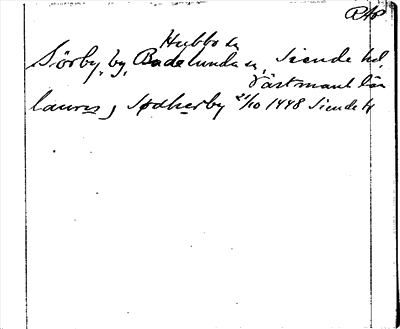 RAp
Hubbo sn
Sörby, by, Badelunda sn, Siende hd,
Västmanl län
laurens j Sødherby 21/10 1448 Siende H